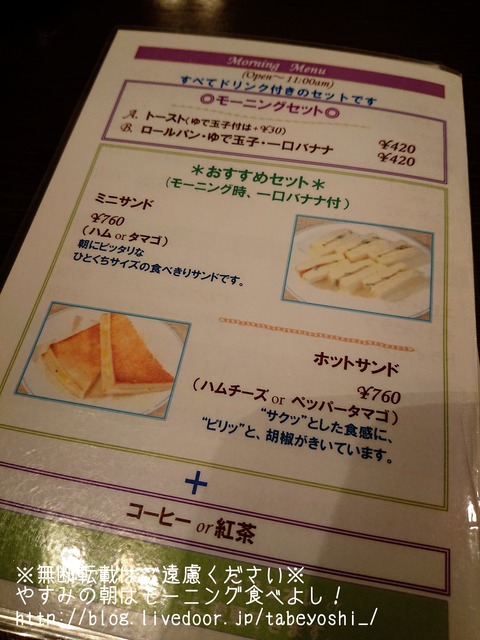 Morning Menu
(Open～11:00am)
すべてドリンク付きのセットです
◎モーニングセット◎
A. トースト(ゆで玉子付は+¥30) ¥420
B. ロールパン・ゆで玉子・一口バナナ ¥420
＊おすすめセット＊
(モーニング時、一口バナナ付)
ミニサンド
¥760
(ハム or タマゴ)
朝にピッタリな
ひとくちサイズの食べきりサンドです。
ホットサンド
¥760
(ハムチーズ or ペッパータマゴ)
“サクッ”とした食感に、
“ピリッ”と、胡椒がきいています。
+
コーヒー or 紅茶
※無断転載はご遠慮ください※
やすみの朝はモーニング食べよし！
http://blog.livedoor.jp/tabeyoshi_/